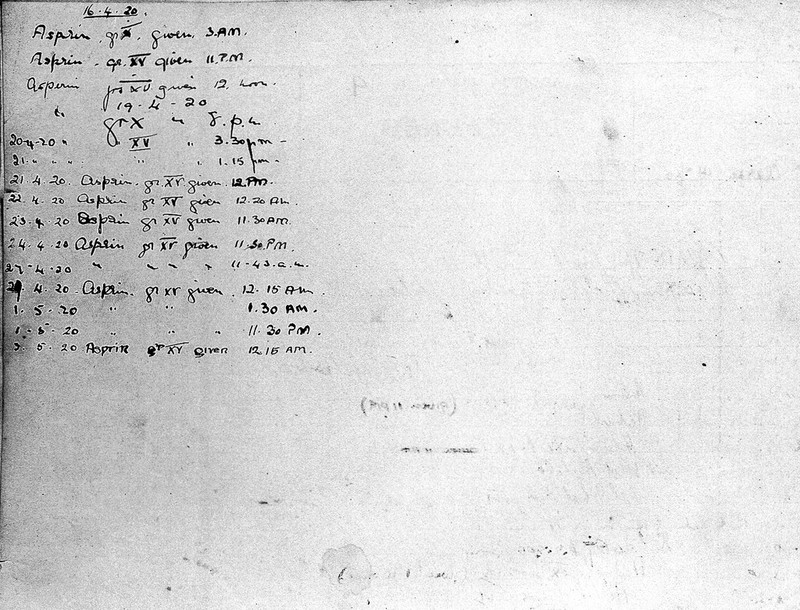 16.4.20.
Asprin. gr X. given. 3.A.M.
Asprin. gr. XV given 11.P.M.
Asperin gr XV given 12. noon.
19-4-20
" gr X " 8.p.m
20-4-20 " " XV " 3.30pm -
21. " " " " " 1.15 pm -
21.4.20. Asprin. gr XV given. 12.P.M.
22.4.20 Asprin gr XV given 12.20 Am.
23.4.20 Asprin gr XV given 11.30 A.M.
24.4.20 Asprin gr XV given 11.30.P.M.
27-4-20 " " " " 11-45.a.m.
29.4.20. Asprin. gr XV given. 12.15 Am.
1.5.20 " " " 1.30 AM.
1.5.20 " " " 11.30 PM.
3.5.20 Asprin gr XV given 12.15 AM.